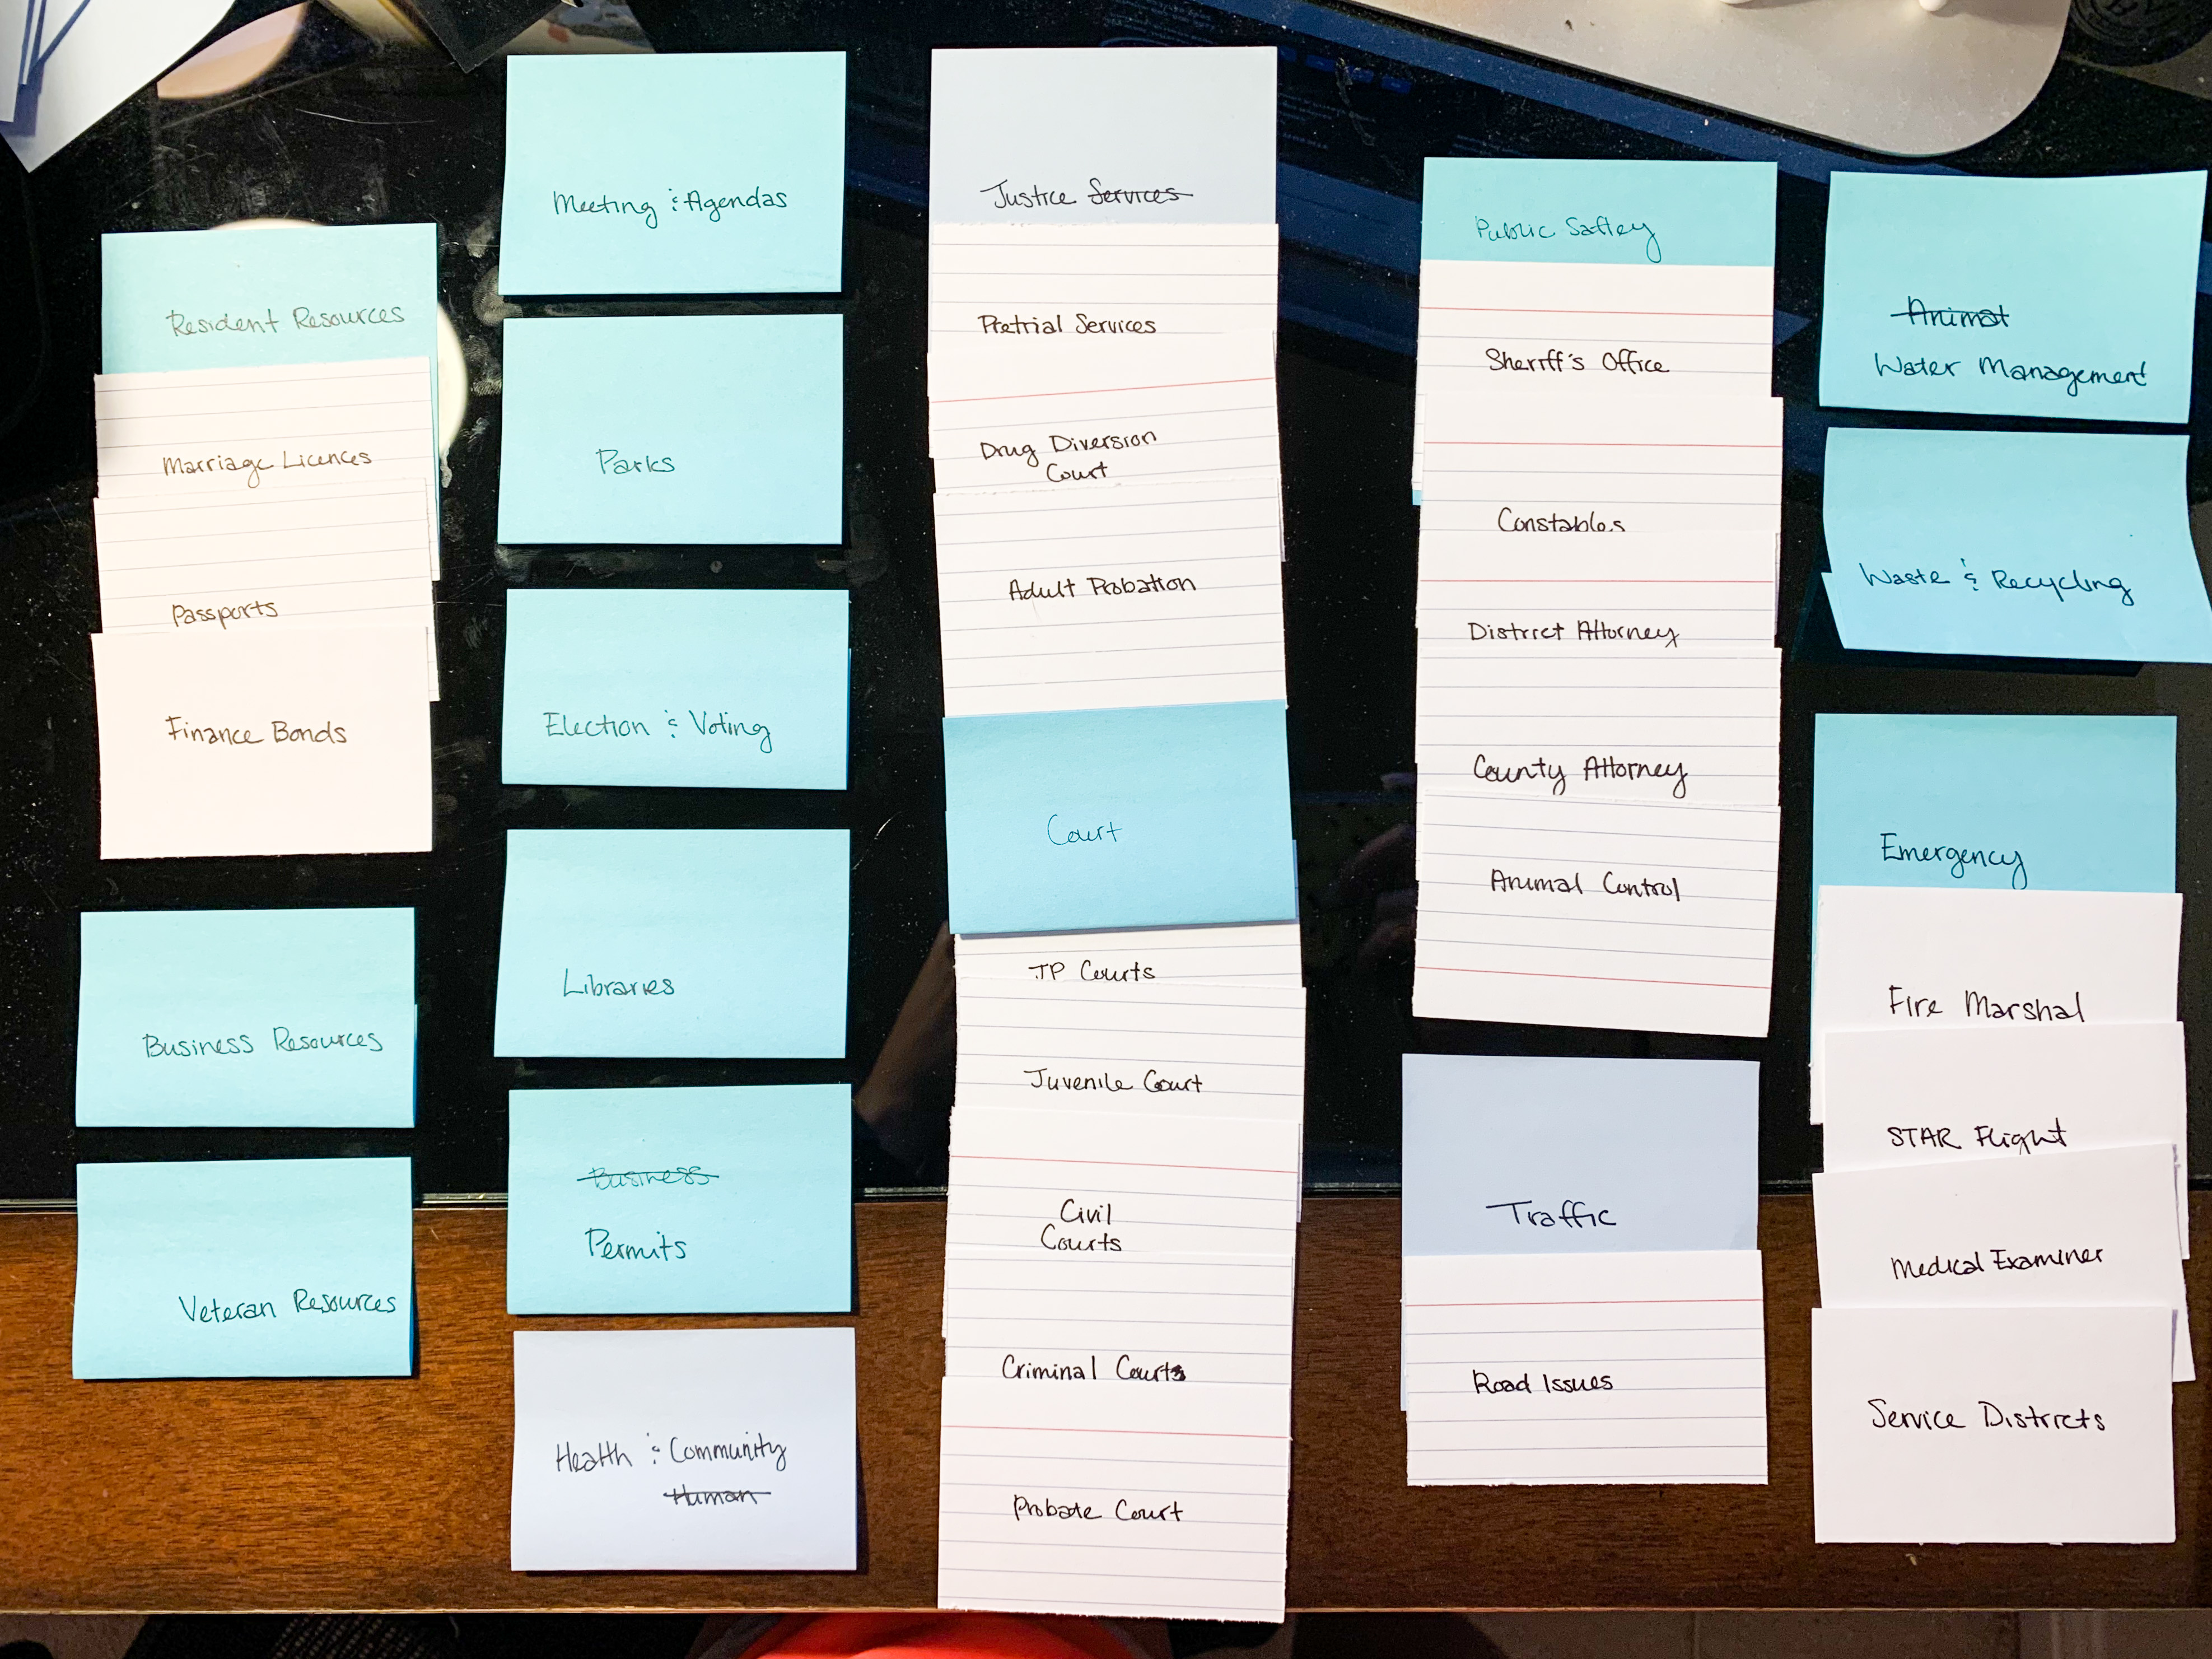 Resident Resources
Marriage Licences
Passports
Finance Bonds
Business Resources
Veteran Resources
Meeting & Agendas
Parks
Election & Voting
Libraries
Business
Permits
Health & Community
Human
Justice Services
Pretrial Services
Drug Diversion
Court
Adult Probation
Court
JP Courts
Juvenile Court
Civil
Courts
Criminal Courts
Probate Court
Public Saftey
Sheriff's Office
Constables
District Attorney
County Attorney
Animal Control
Traffic
Road Issues
Animal
Water Management
Waste & Recycling
Emergency
Fire Marshal
STAR Flight
Medical Examiner
Service Districts